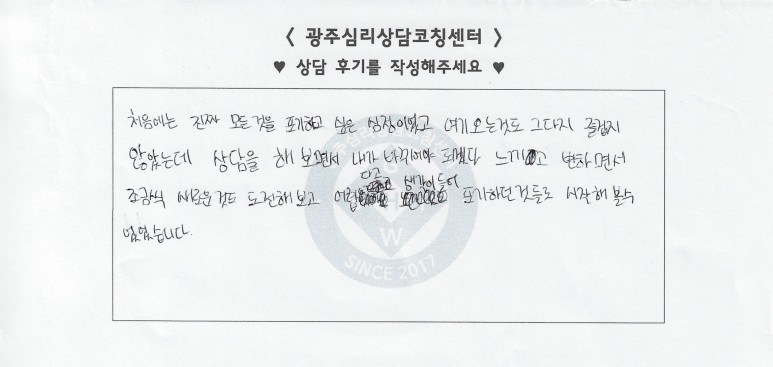 < 광주심리상담코칭센터 >
♥ 상담 후기를 작성해주세요 ♥
처음에는 진짜 모든것을 포기하고 싶은 심정이었고 여기오는것도 그다지 즐겁지
않았는데 상담을 해보면서 내가 바뀌어야 되겠다 느끼고 변화하면서
조금씩 새로운것도 도전해보고 어렵다고 생각이들어 포기하던것들도 시작해 볼수
있었습니다.
W
SINCE 2017